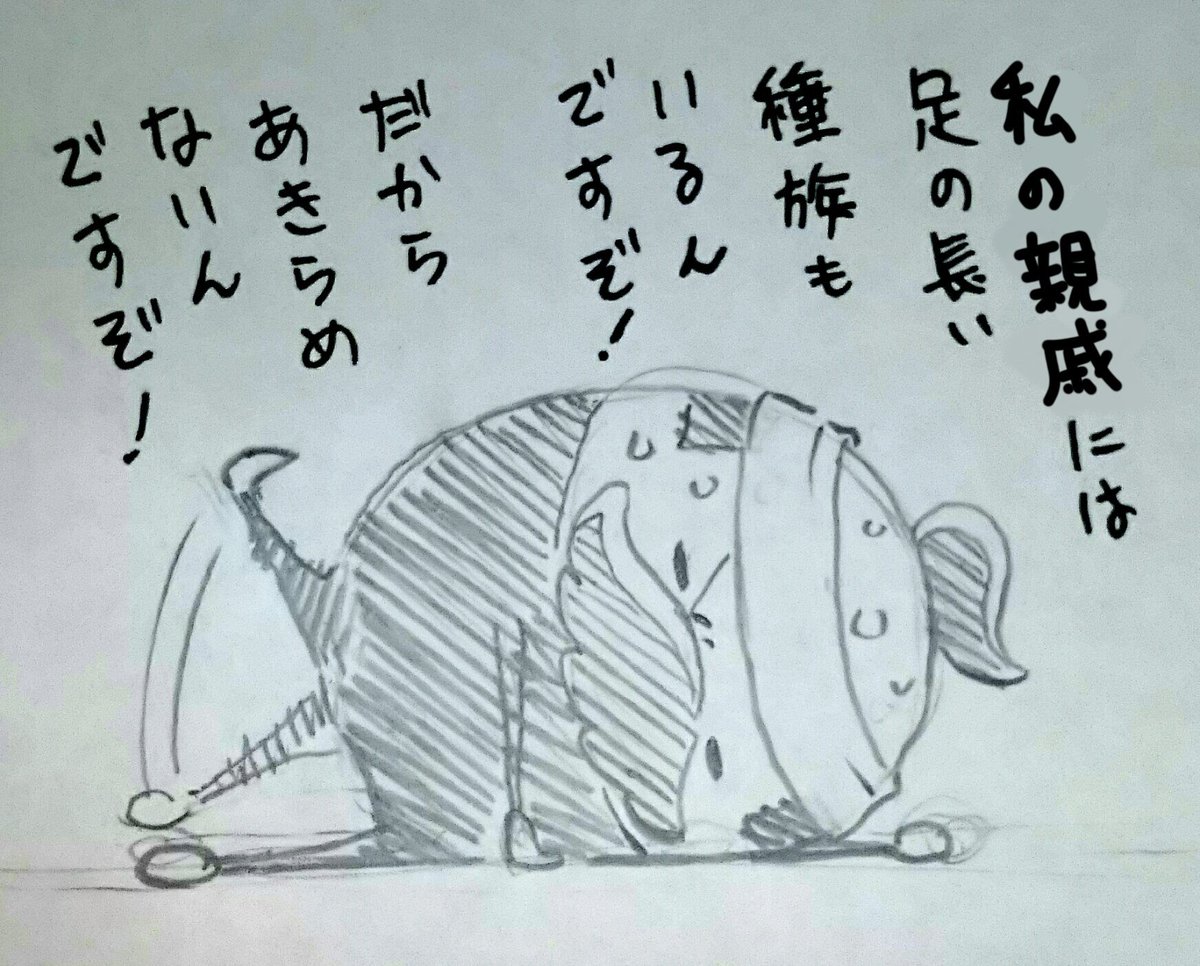 私の親戚には
足の長い
種族も
いるん
ですぞ!
だから
あきらめ
ないん
ですぞ!